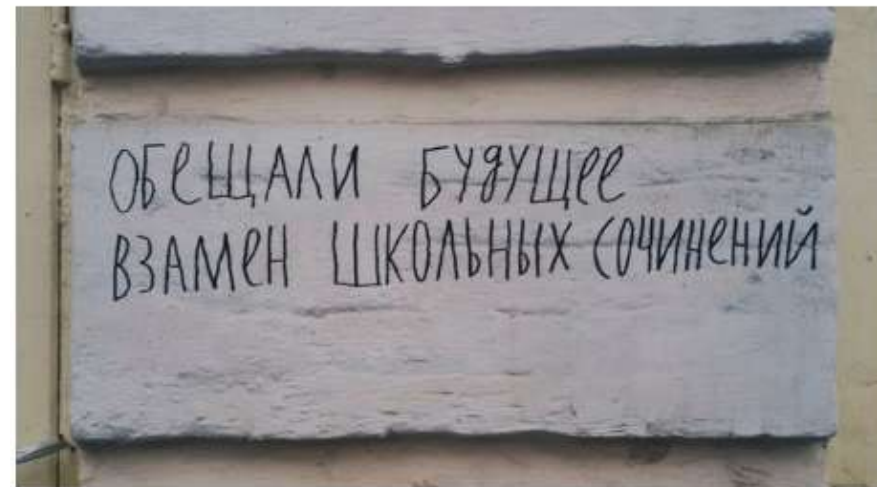 ОБЕЩАЛИ БУДУЩЕЕ
ВЗАМЕН ШКОЛЬНЫХ СОЧИНЕНИЙ